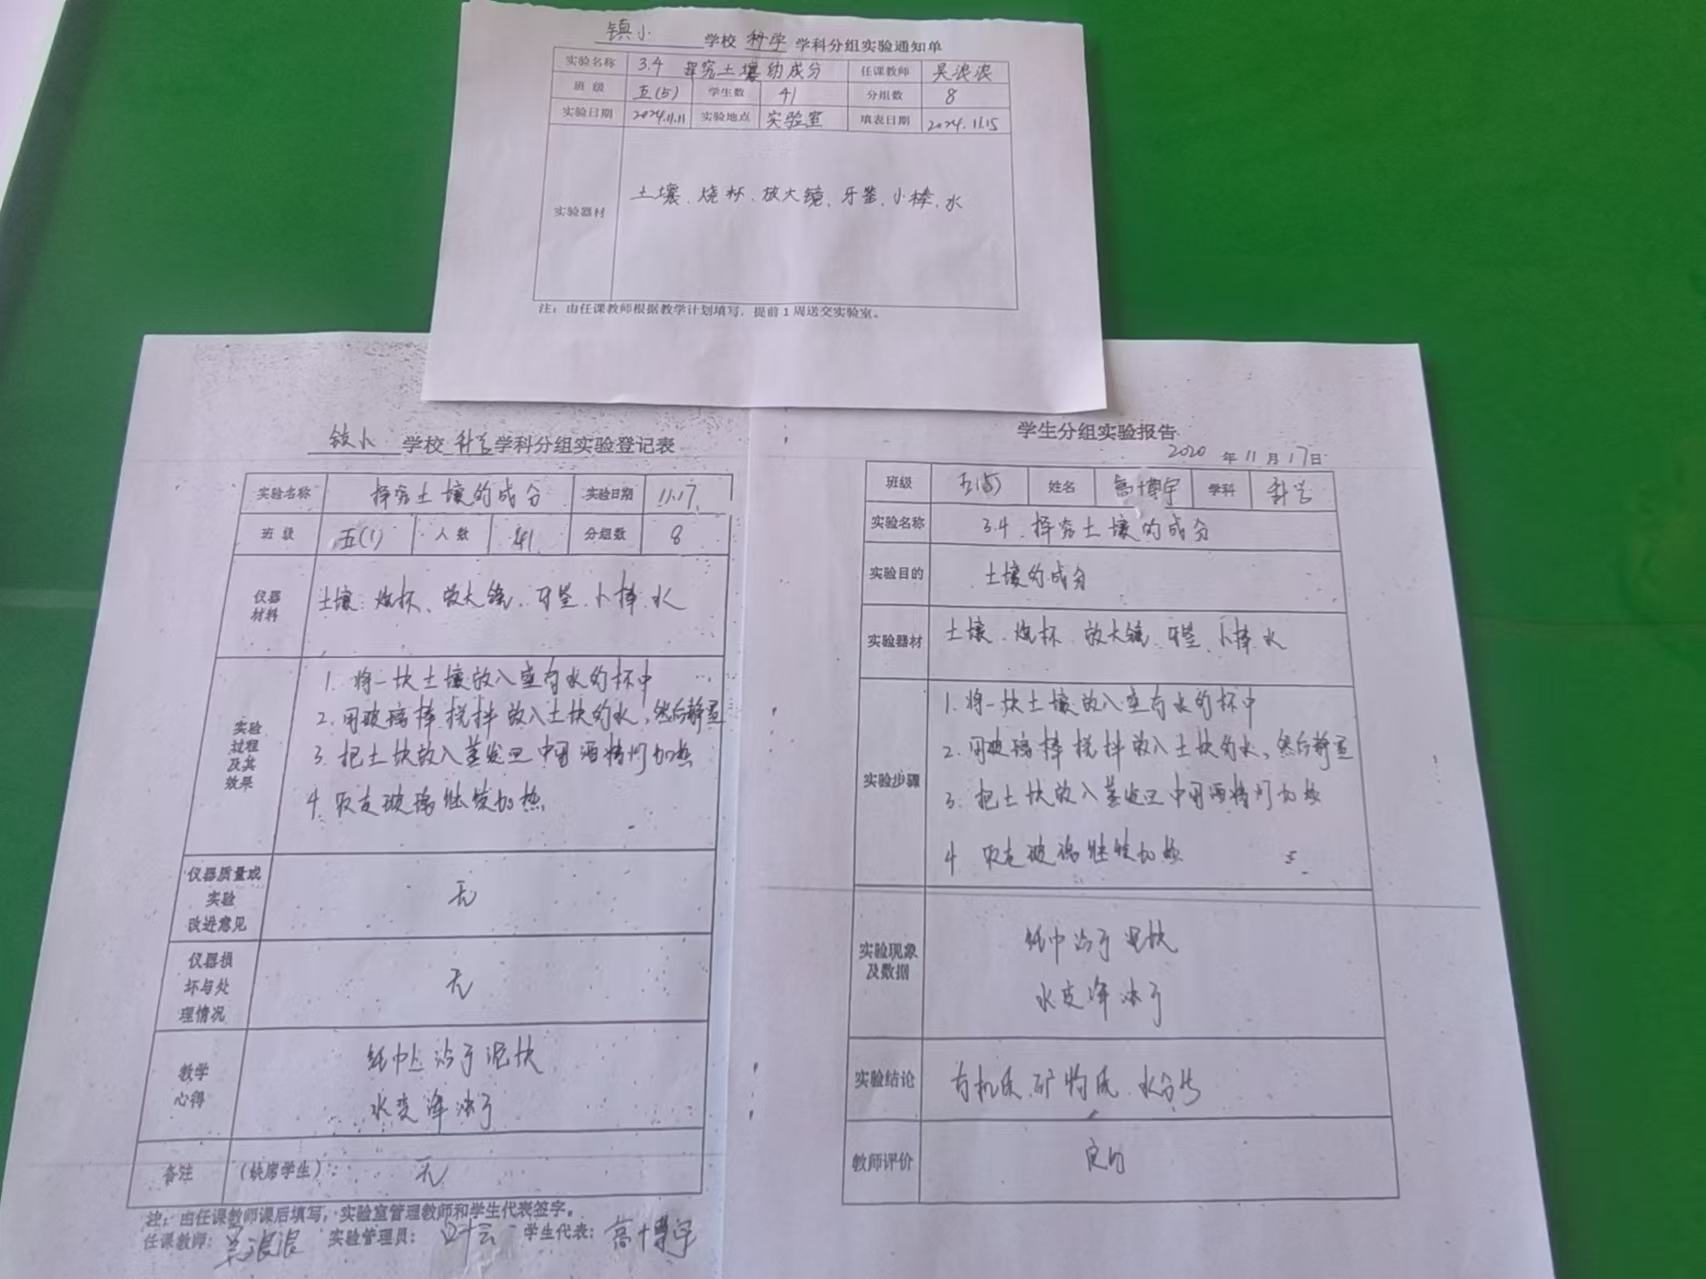 镇小 学校 科学 学科分组实验通知单
实验名称 3.4 探究土壤的成分 任课教师 吴浪浪
班 级 五(5) 学生数 41 分组数 8
实验日期 2024.11.11 实验地点 实验室 填表日期 2024.11.15
实验器材 土壤、烧杯、放大镜、牙签、小棒、水
注：由任课教师根据教学计划填写，提前1周送交实验室。
镇小 学校 科学 学科分组实验登记表
实验名称 探究土壤的成分 实验日期 11.17.
班 级 五(1) 人 数 41 分组数 8
仪器材料 土壤、烧杯、放大镜、牙签、小棒、水
实验过程及其效果
1. 将一块土壤放入盛有水的杯中
2. 用玻璃棒搅拌放入土块的水，然后静置
3. 把土块放入蒸发皿中用酒精灯加热
4. 取走玻璃继续加热
仪器质量或实验改进意见 无
仪器损坏与处理情况 无
教学心得 纸巾上沾了泥块
水变浑浊了
备注 （缺席学生）： 无
注：由任课教师课后填写，实验室管理教师和学生代表签字。
任课教师：吴浪浪 实验管理员： 叶云 学生代表：高博宇
学生分组实验报告
2020 年 11 月 17 日
班级 五(5) 姓名 高博宇 学科 科学
实验名称 3.4. 探究土壤的成分
实验目的 土壤的成分
实验器材 土壤、烧杯、放大镜、牙签、小棒、水
实验步骤
1. 将一块土壤放入盛有水的杯中
2. 用玻璃棒搅拌放入土块的水，然后静置
3. 把土块放入蒸发皿中用酒精灯加热
4 取走玻璃继续加热
实验现象及数据 纸巾沾了泥块
水变浑浊了
实验结论 有机质、矿物质、水分等
教师评价 良好